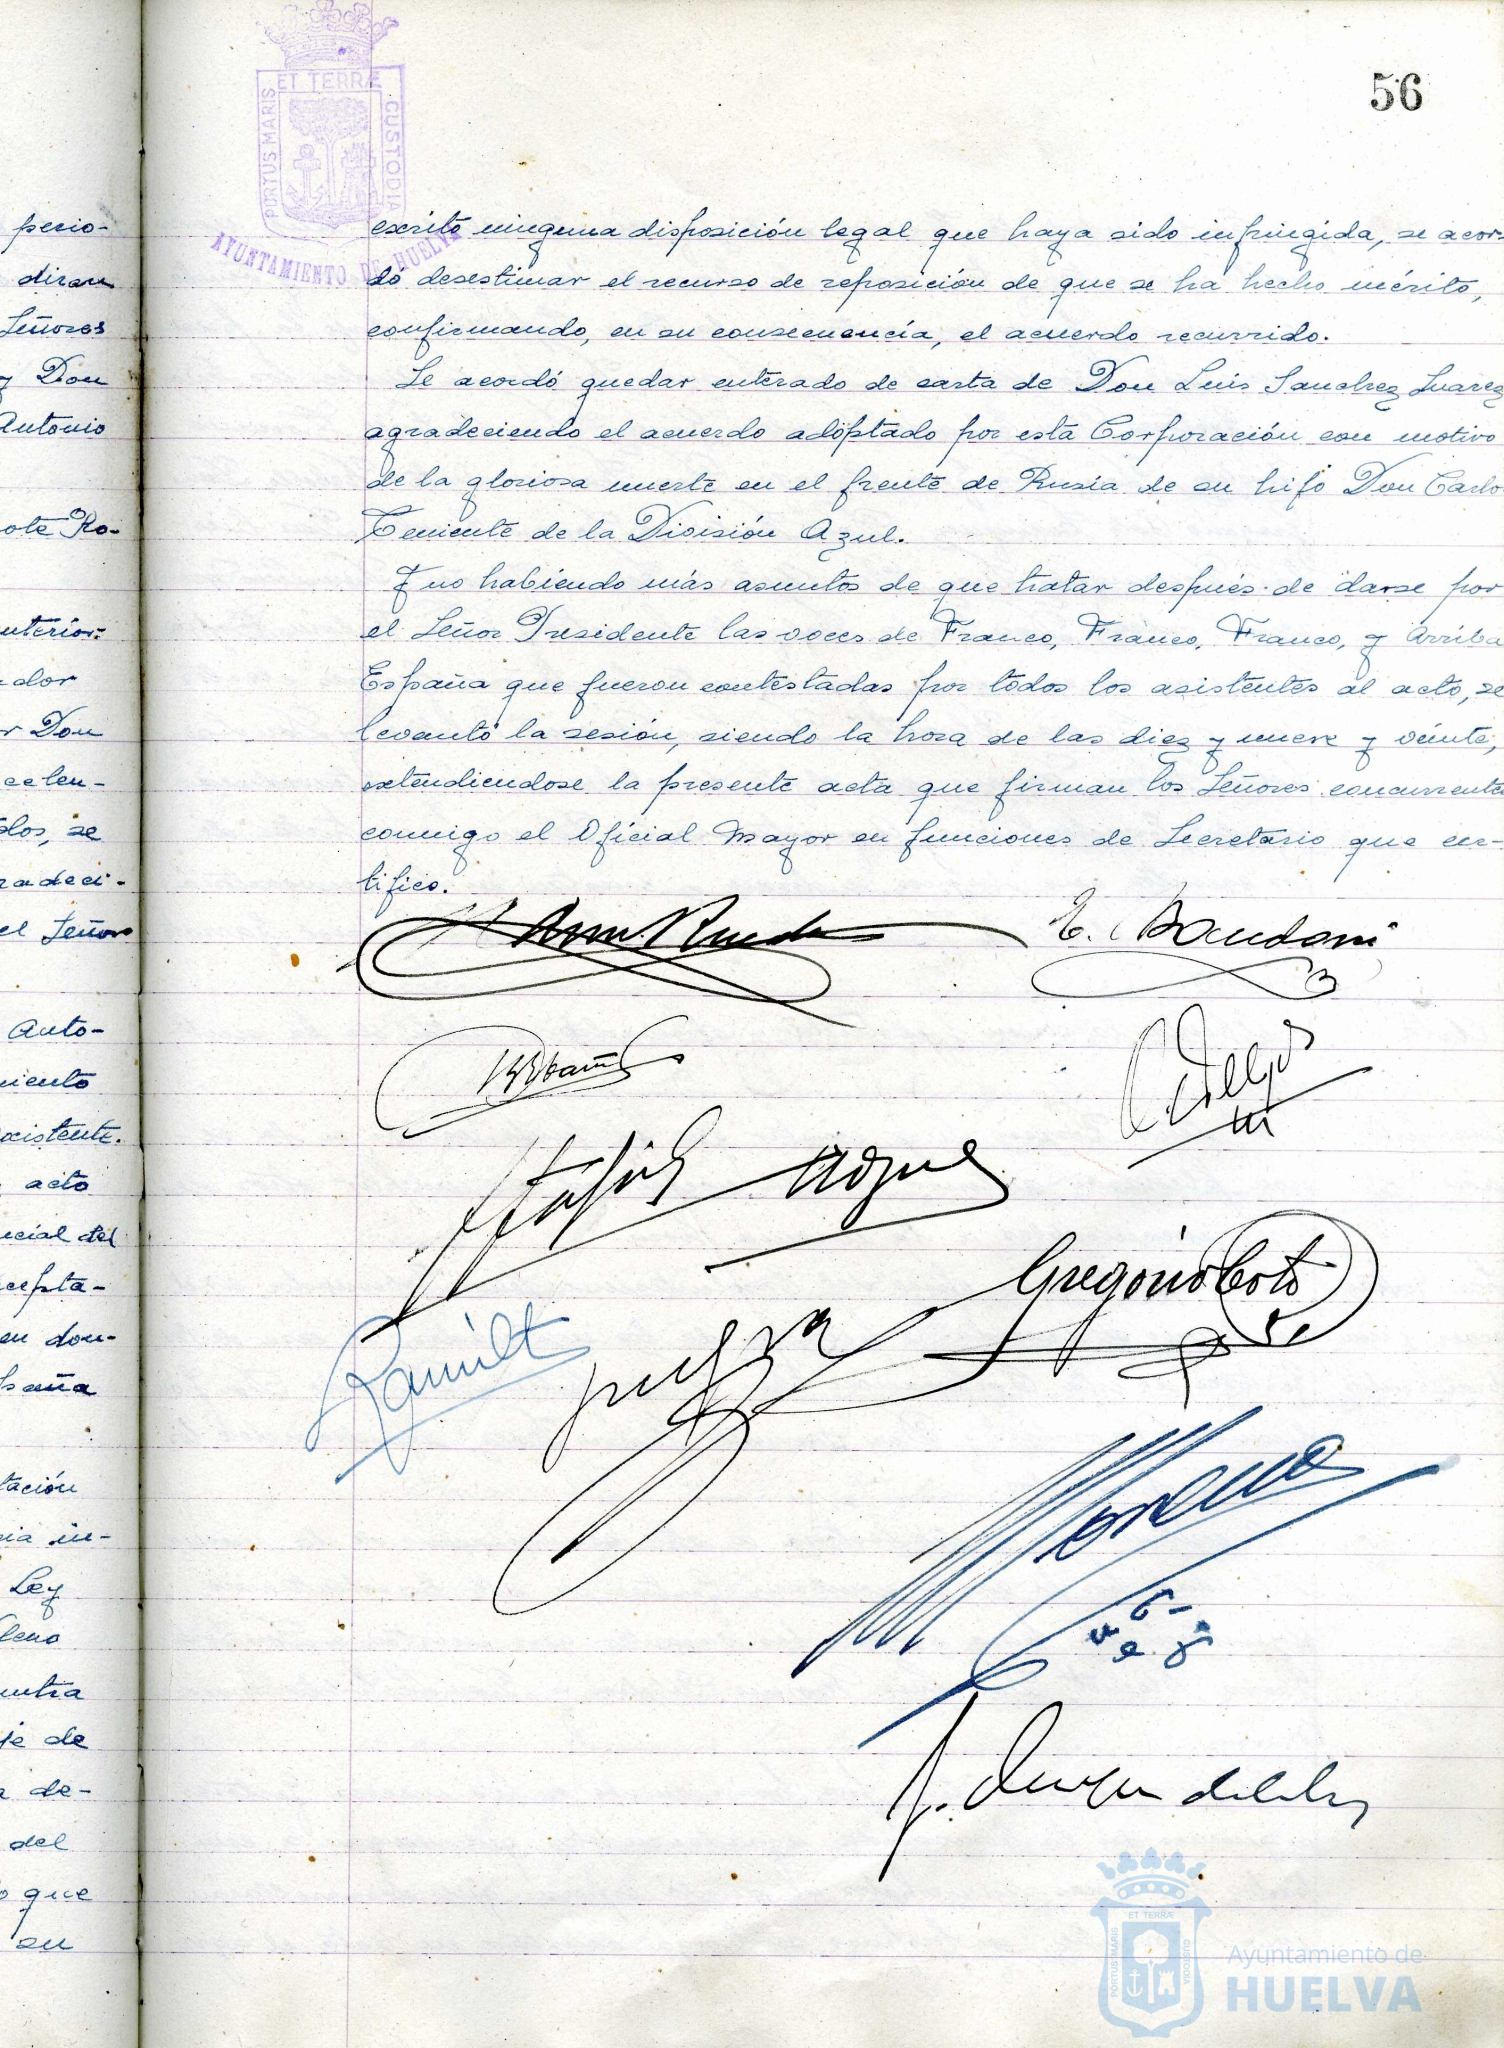 56
PORTUS MARIS ET TERRÆ CUSTODIA
AYUNTAMIENTO DE HUELVA
perio-
diran
Señores
y Don
Antonio
ote Ro-
nterior:
ador
r Don
celen-
dos, se
radeci-
el Señor
Auto-
miento
existente.
acto
ncial del
cepta-
en don-
spaña
tación
ria in-
Ley
leno
ontra
je de
a de-
del
o que
su
escrito ninguna disposición legal que haya sido infringida, se acor-
dó desestimar el recurso de reposición de que se ha hecho mérito,
confirmando, en su consecuencia, el acuerdo recurrido.
Se acordó quedar enterado de carta de Don Luis Sanchez Suarez
agradeciendo el acuerdo adoptado por esta Corporación con motivo
de la gloriosa muerte en el frente de Rusia de su hijo Don Carlo
Teniente de la División Azul.
Y no habiendo más asuntos de que tratar después de darse por
el Señor Presidente las voces de Franco, Franco, Franco, y Arriba
España que fueron contestadas por todos los asistentes al acto, se
levantó la sesión, siendo la hora de las diez y nueve y veinte,
extendiendose la presente acta que firman los Señores concurrente
conmigo el Oficial Mayor en funciones de Secretario que cer-
tifico.
Gregorio Coto
PORTUS MARIS ET TERRÆ CUSTODIA
Ayuntamiento de
HUELVA